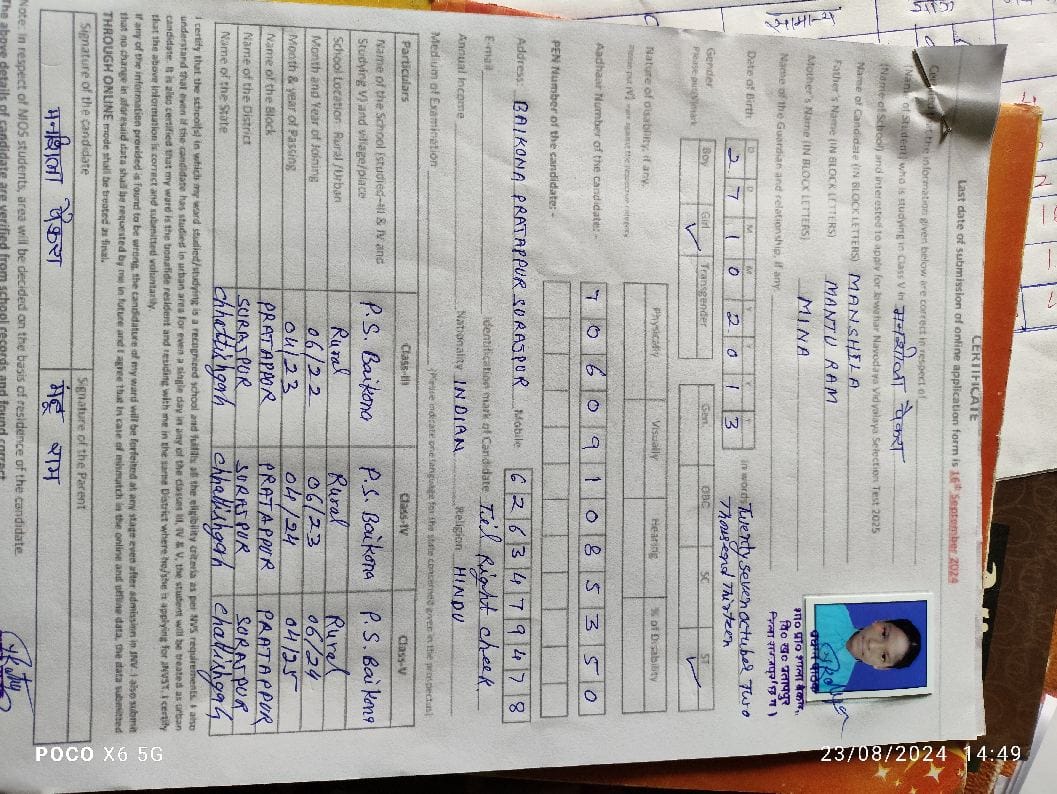 CERTIFICATE
Last date of submission of online application form is 16th September 2024
the information given below are correct in respect of
(Name of Student) who is studying in Class V in
(Name of School) and interested to apply for Jawahar Navodaya Vidyalaya Selection Test 2025
Name of Candidate (IN BLOCK LETTERS) MANSHILA
Father's Name (IN BLOCK LETTERS) MANTU RAM
Mother's Name (IN BLOCK LETTERS) MINA
Name of the Guardian and relationship, if any
Date of Birth D D M M Y Y Y Y in words Twenty seven october Two
2 7 1 0 2 0 1 3 Thousand Thirteen
Gender Boy Girl Transgender Gen. OBC SC ST
Please put (✓) mark ✓ ✓
Nature of disability, if any. Physically Visually Hearing % of Disability
Aadhaar Number of the candidate:- 7 0 6 0 9 1 0 8 5 3 5 0
PEN Number of the candidate:-
Address: BAIKONA PRATAPPUR SURAJPUR Mobile 6 2 6 3 4 7 9 4 7 8
E-mail Identification mark of Candidate Til Right cheek
Annual Income Nationality INDIAN Religion HINDU
Medium of Examination (Please indicate one language for the state concerned given in the prospectus)
Particulars Class-III Class-IV Class-V
Name of the School (studied-III & IV and Studying V) and village/place P.S. Baikona P.S. Baikona P.S. Baikona
School Location: Rural /Urban Rural Rural Rural
Month and Year of Joining 06/22 06/23 06/24
Month & year of Passing 04/23 04/24 04/25
Name of the Block PRATAPPUR PRATAPPUR PRATAPPUR
Name of the District SURAJPUR SURAJPUR SURAJPUR
Name of the State Chhattisgarh Chhattisgarh Chhattisgarh
I certify that the school(s) in which my ward studied/studying is a recognized school and fulfills all the eligibility criteria as per NVS requirements. I also
understand that even if the candidate has studied in urban area for even a single day in any of the classes III, IV & V, the student will be treated as urban
candidate. It is also certified that my ward is the bonefide resident and residing with me in the same District where he/she is applying for JNVST. I certify
that the above information is correct and submitted voluntarily.
If any of the information provided is found to be wrong, the candidature of my ward will be forfeited at any stage even after admission in JNV. I also submit
that no change in aforesaid data shall be requested by me in future and I agree that in case of mismatch in the online and offline data, the data submitted
THROUGH ONLINE mode shall be treated as final.
Signature of the candidate Signature of the Parent
मनशिला मंटू राम
Note: In respect of NIOS students, area will be decided on the basis of residence of the candidate.
The above details of candidate are verified from school records and found correct
POCO X6 5G
23/08/2024 14:49